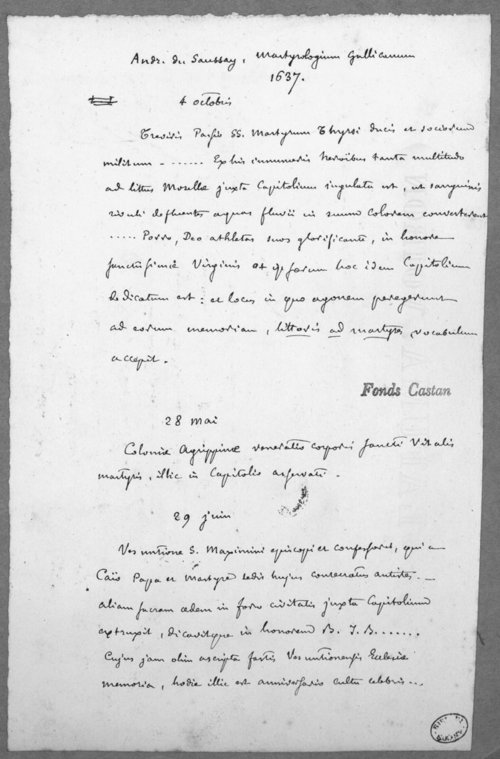 Andr. du Saussay, Martyrologium Gallicanum
1637.
4 octobris
Treviris Passio SS. Martyrum Thyrsi ducis et sociorum
militum - ...... Ex his innumeris heroibus tanta multitudo
ad littus Mosellæ juxta Capitolium jugulata est, ut sanguinis
rivuli defluentes aquas fluvii in suum colorem converterent
..... Porro, Deo athletas suos glorificante, in honorem
sanctissimæ Virginis et ipsorum hoc idem Capitolium
dedicatum est : et locus in quo agonem peregerunt
ad eorum memoriam, littoris ad martyres vocabulum
accepit.
Fonds Castan
28 mai
Coloniæ Agrippinæ veneratio corporis sancti Vitalis
martyris, illic in Capitolio asservati.
29 juin
Vesuntione S. Maximini episcopi et confessoris, qui a
Caïo Papa et martyre sedis hujus consecratus antistes...
aliam sacram ædem in foro civitatis juxta Capitolium
extruxit, dicavitque in honorem B. J. B.......
Cujus jam olim ascripta fastis Vesuntionensis Ecclesiæ
memoria, hodie illic est anniversario cultu celebris...